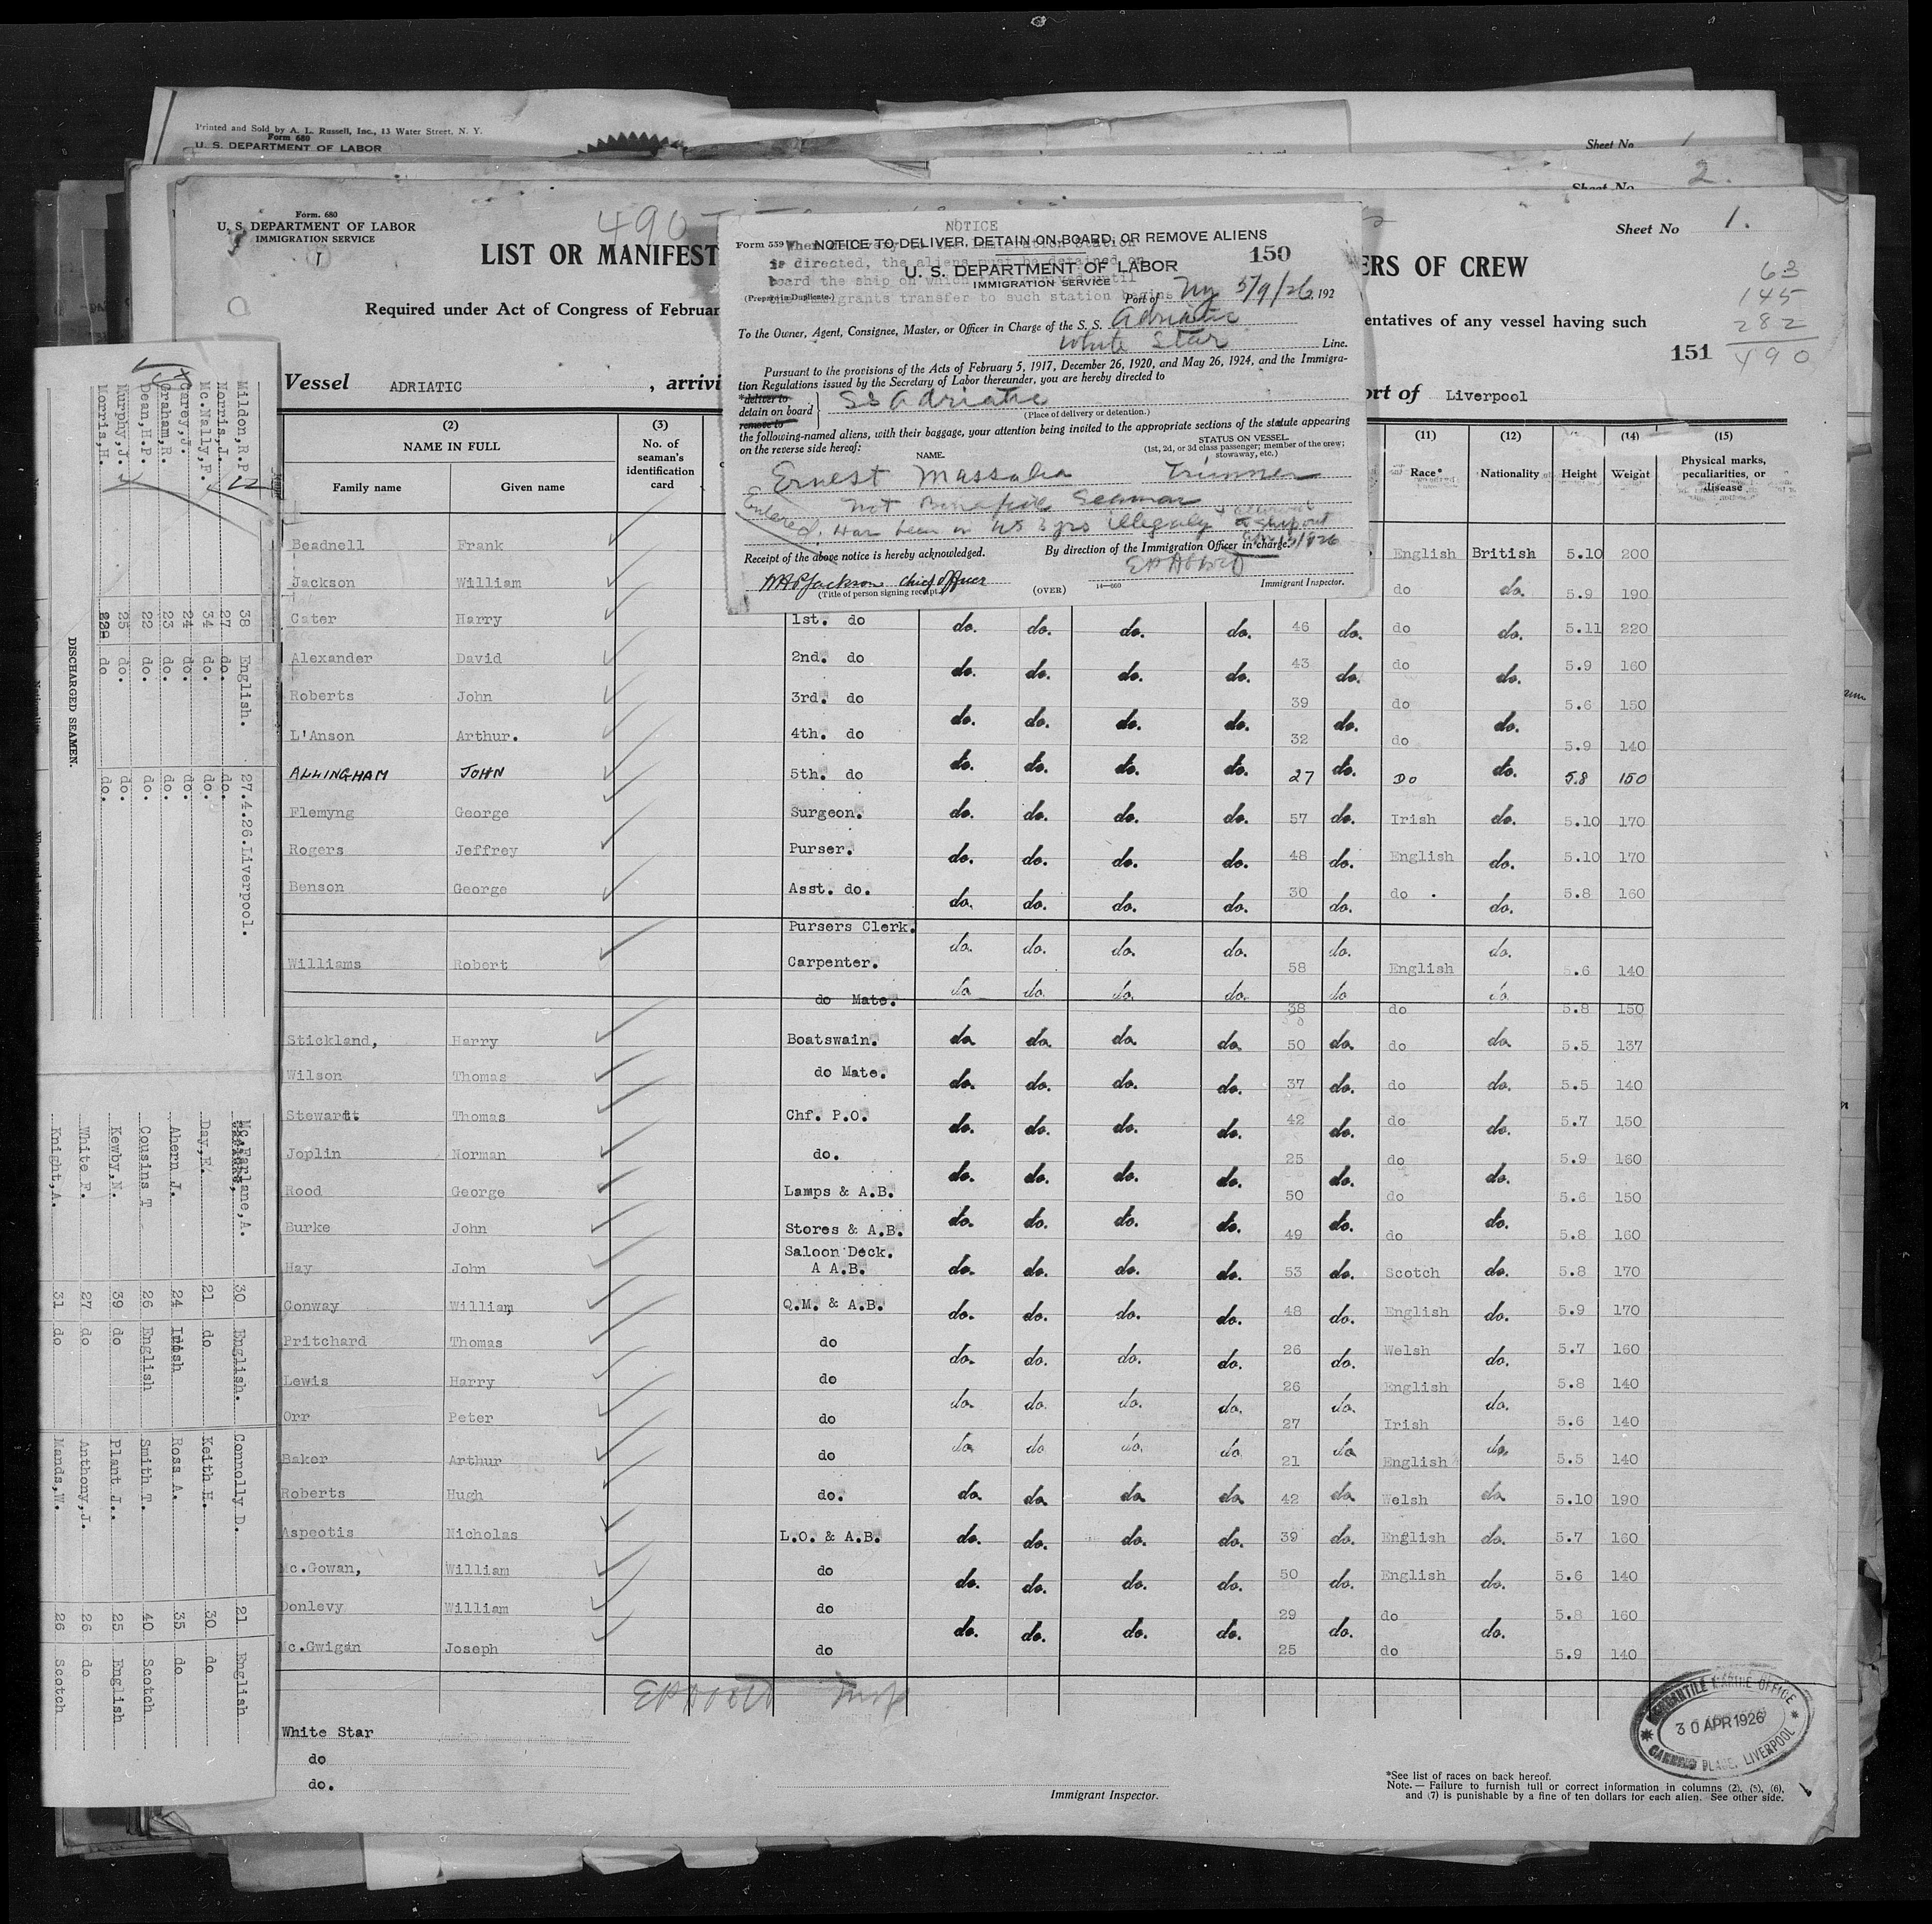 Printed and Sold by A. L. Russell, Inc., 13 Water Street, N. Y.
Form 680
U. S. DEPARTMENT OF LABOR
Sheet No 1
Sheet No 2.
Form. 680
U. S. DEPARTMENT OF LABOR
IMMIGRATION SERVICE
490
Sheet No 1.
LIST OR MANIFEST
ERS OF CREW
Required under Act of Congress of Februar
entatives of any vessel having such
63
145
282
490
151
Vessel ADRIATIC , arrivi
ort of Liverpool
NOTICE
When
is directed, the aliens must be detained on
board the ship on which
immigrants transfer to such station begins
Form 559
NOTICE TO DELIVER, DETAIN ON BOARD, OR REMOVE ALIENS
150
U. S. DEPARTMENT OF LABOR
IMMIGRATION SERVICE
(Prepare in Duplicate.)
Port of NY 5/9/26, 192
To the Owner, Agent, Consignee, Master, or Officer in Charge of the S. S. Adriatic
White Star Line.
Pursuant to the provisions of the Acts of February 5, 1917, December 26, 1920, and May 26, 1924, and the Immigra-
tion Regulations issued by the Secretary of Labor thereunder, you are hereby directed to
*deliver to
detain on board } SS Adriatic
remove to
(Place of delivery or detention.)
the following-named aliens, with their baggage, your attention being invited to the appropriate sections of the statute appearing
on the reverse side hereof:
NAME.
STATUS ON VESSEL.
(1st, 2d, or 3d class passenger; member of the crew;
stowaway, etc.)
Ernest Trimmer
Not Bonafide Seaman
Entered. Has been in US 3 yrs illegaly
Receipt of the above notice is hereby acknowledged.
By direction of the Immigration Officer in charge:
Jackson chief officer
(Title of person signing receipt.)
(OVER)
14—660
Immigrant Inspector.
(2)
NAME IN FULL
Family name
Given name
(3)
No. of
seaman's
identification
card
(11)
Race*
(12)
Nationality
Height
(14)
Weight
(15)
Physical marks,
peculiarities, or
disease
Beadnell Frank English British 5.10 200
Jackson William do do. 5.9 190
Cater Harry 1st. do do. do. do. do. 46 do. do do. 5.11 220
Alexander David 2nd. do do. do. do. do. 43 do. do do. 5.9 160
Roberts John 3rd. do do. do. do. do. 39 do. do do. 5.6 150
L'Anson Arthur. 4th. do do. do. do. do. 32 do. do do. 5.9 140
ALLINGHAM JOHN 5th. do do. do. do. do. 27 do. DO do. 5.8 150
Flemyng George Surgeon. do. do. do. do. 57 do. Irish do. 5.10 170
Rogers Jeffrey Purser. do. do. do. do. 48 do. English do. 5.10 170
Benson George Asst. do. do. do. do. do. 30 do. do . do. 5.8 160
Pursers Clerk.
Williams Robert Carpenter. do. do. do. do. 58 do. English do. 5.6 140
do Mate. do do. do. do. 38 do do do. 5.8 150
Stickland, Harry Boatswain. do do. do. do. 50 do. do do. 5.5 137
Wilson Thomas do Mate. do. do. do. do. 37 do. do do. 5.5 140
Stewart. Thomas Chf. P.O. do. do. do. do. 42 do. do do. 5.7 150
Joplin Norman do. do. do. do. do. 25 do. do do. 5.9 160
Rood George Lamps & A.B. do. do. do. do. 50 do. do do. 5.6 150
Burke John Stores & A.B. do. do. do. do. 49 do. do do. 5.8 160
Saloon Deck.
Hay John A A.B. do. do. do. do. 53 do. Scotch do. 5.8 170
Conway William, Q.M. & A.B. do. do. do. do. 48 do. English do. 5.9 170
Pritchard Thomas do do. do. do. do. 26 do. Welsh do. 5.7 160
Lewis Harry do 26 English 5.8 140
Orr Peter do do. do. do. do. 27 do. Irish do. 5.6 140
Baker Arthur do do do do. do 21 do English do. 5.5 140
Roberts Hugh do. do. do. do. do. 42 do. Welsh do. 5.10 190
Aspeotis Nicholas L.O. & A.B. do. do. do. do. 39 do. English do. 5.7 160
Mc.Gowan, William do do. do. do. do. 50 do. English do. 5.6 140
Donlevy William do 29 do 5.8 160
Mc.Gwigan Joseph do do. do. do. do. 25 do. do do. 5.9 140
White Star
do
do.
Immigrant Inspector.
*See list of races on back hereof.
Note. — Failure to furnish full or correct information in columns (2), (5), (6),
and (7) is punishable by a fine of ten dollars for each alien. See other side.
MERCANTILE MARINE OFFICE
30 APR 1926
CANNING PLACE, LIVERPOOL
Mildon,R.P 38 English. 27.4.26.Liverpool.
Norris,J. 27 do. do.
Mc.Nally,F. 34 do. do.
Carey,J. 24 do. do.
Graham,R. 23 do. do.
Dean,H.P. 22 do. do.
Murphy,J. 25 do. do.
Morris,H. do do.
DISCHARGED SEAMEN.
Mc.Farlane,A. 30 English. Connolly.D. 21 English
Day,E. 21 do Keith H. 30 do
Ahern J. 24 Irish Ross A. 35 do
Cousins T 26 English Smith T. 40 Scotch
Kewby,N. 39 do Plant J. 25 English
White F. 27 do Anthony,J. 26 do
Knight,A. 31 do Mands,W. 26 Scotch